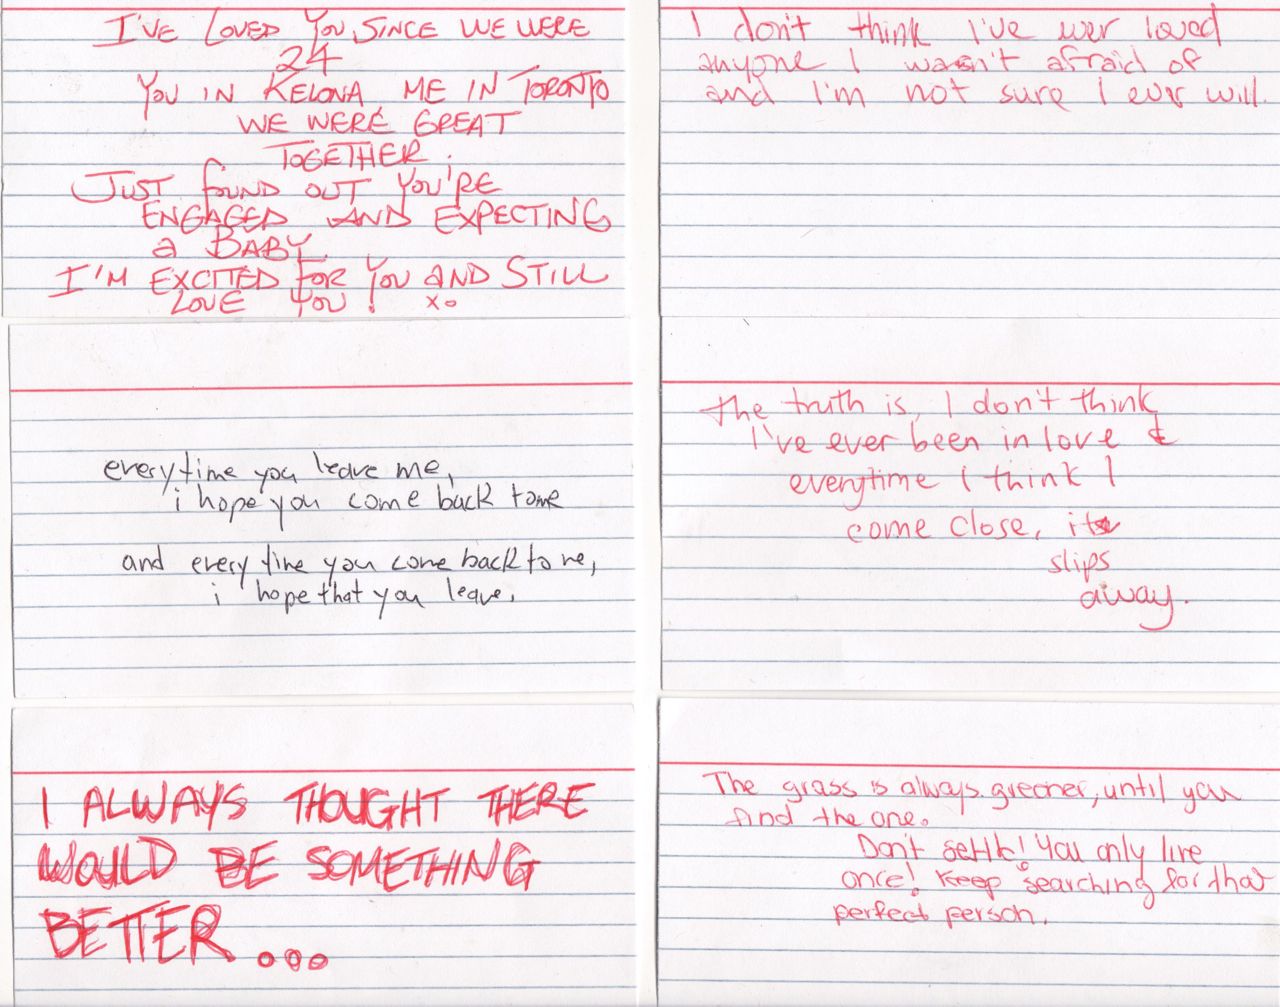 I'VE LOVED YOU SINCE WE WERE
24
YOU IN KELONA, ME IN TORONTO
WE WERE GREAT
TOGETHER.
JUST FOUND OUT YOU'RE
ENGAGED AND EXPECTING
a BABY.
I'M EXCITED FOR YOU AND STILL
LOVE YOU! xo
I don't think I've ever loved
anyone I wasn't afraid of
and I'm not sure I ever will.
everytime you leave me,
i hope you come back to me
and every time you come back to me,
i hope that you leave.
The truth is, I don't think
I've ever been in love &
everytime I think I
come close, it
slips
away.
I ALWAYS THOUGHT THERE
WOULD BE SOMETHING
BETTER...
The grass is always greener, until you
find the one.
Don't settle! You only live
once! Keep searching for that
perfect person.